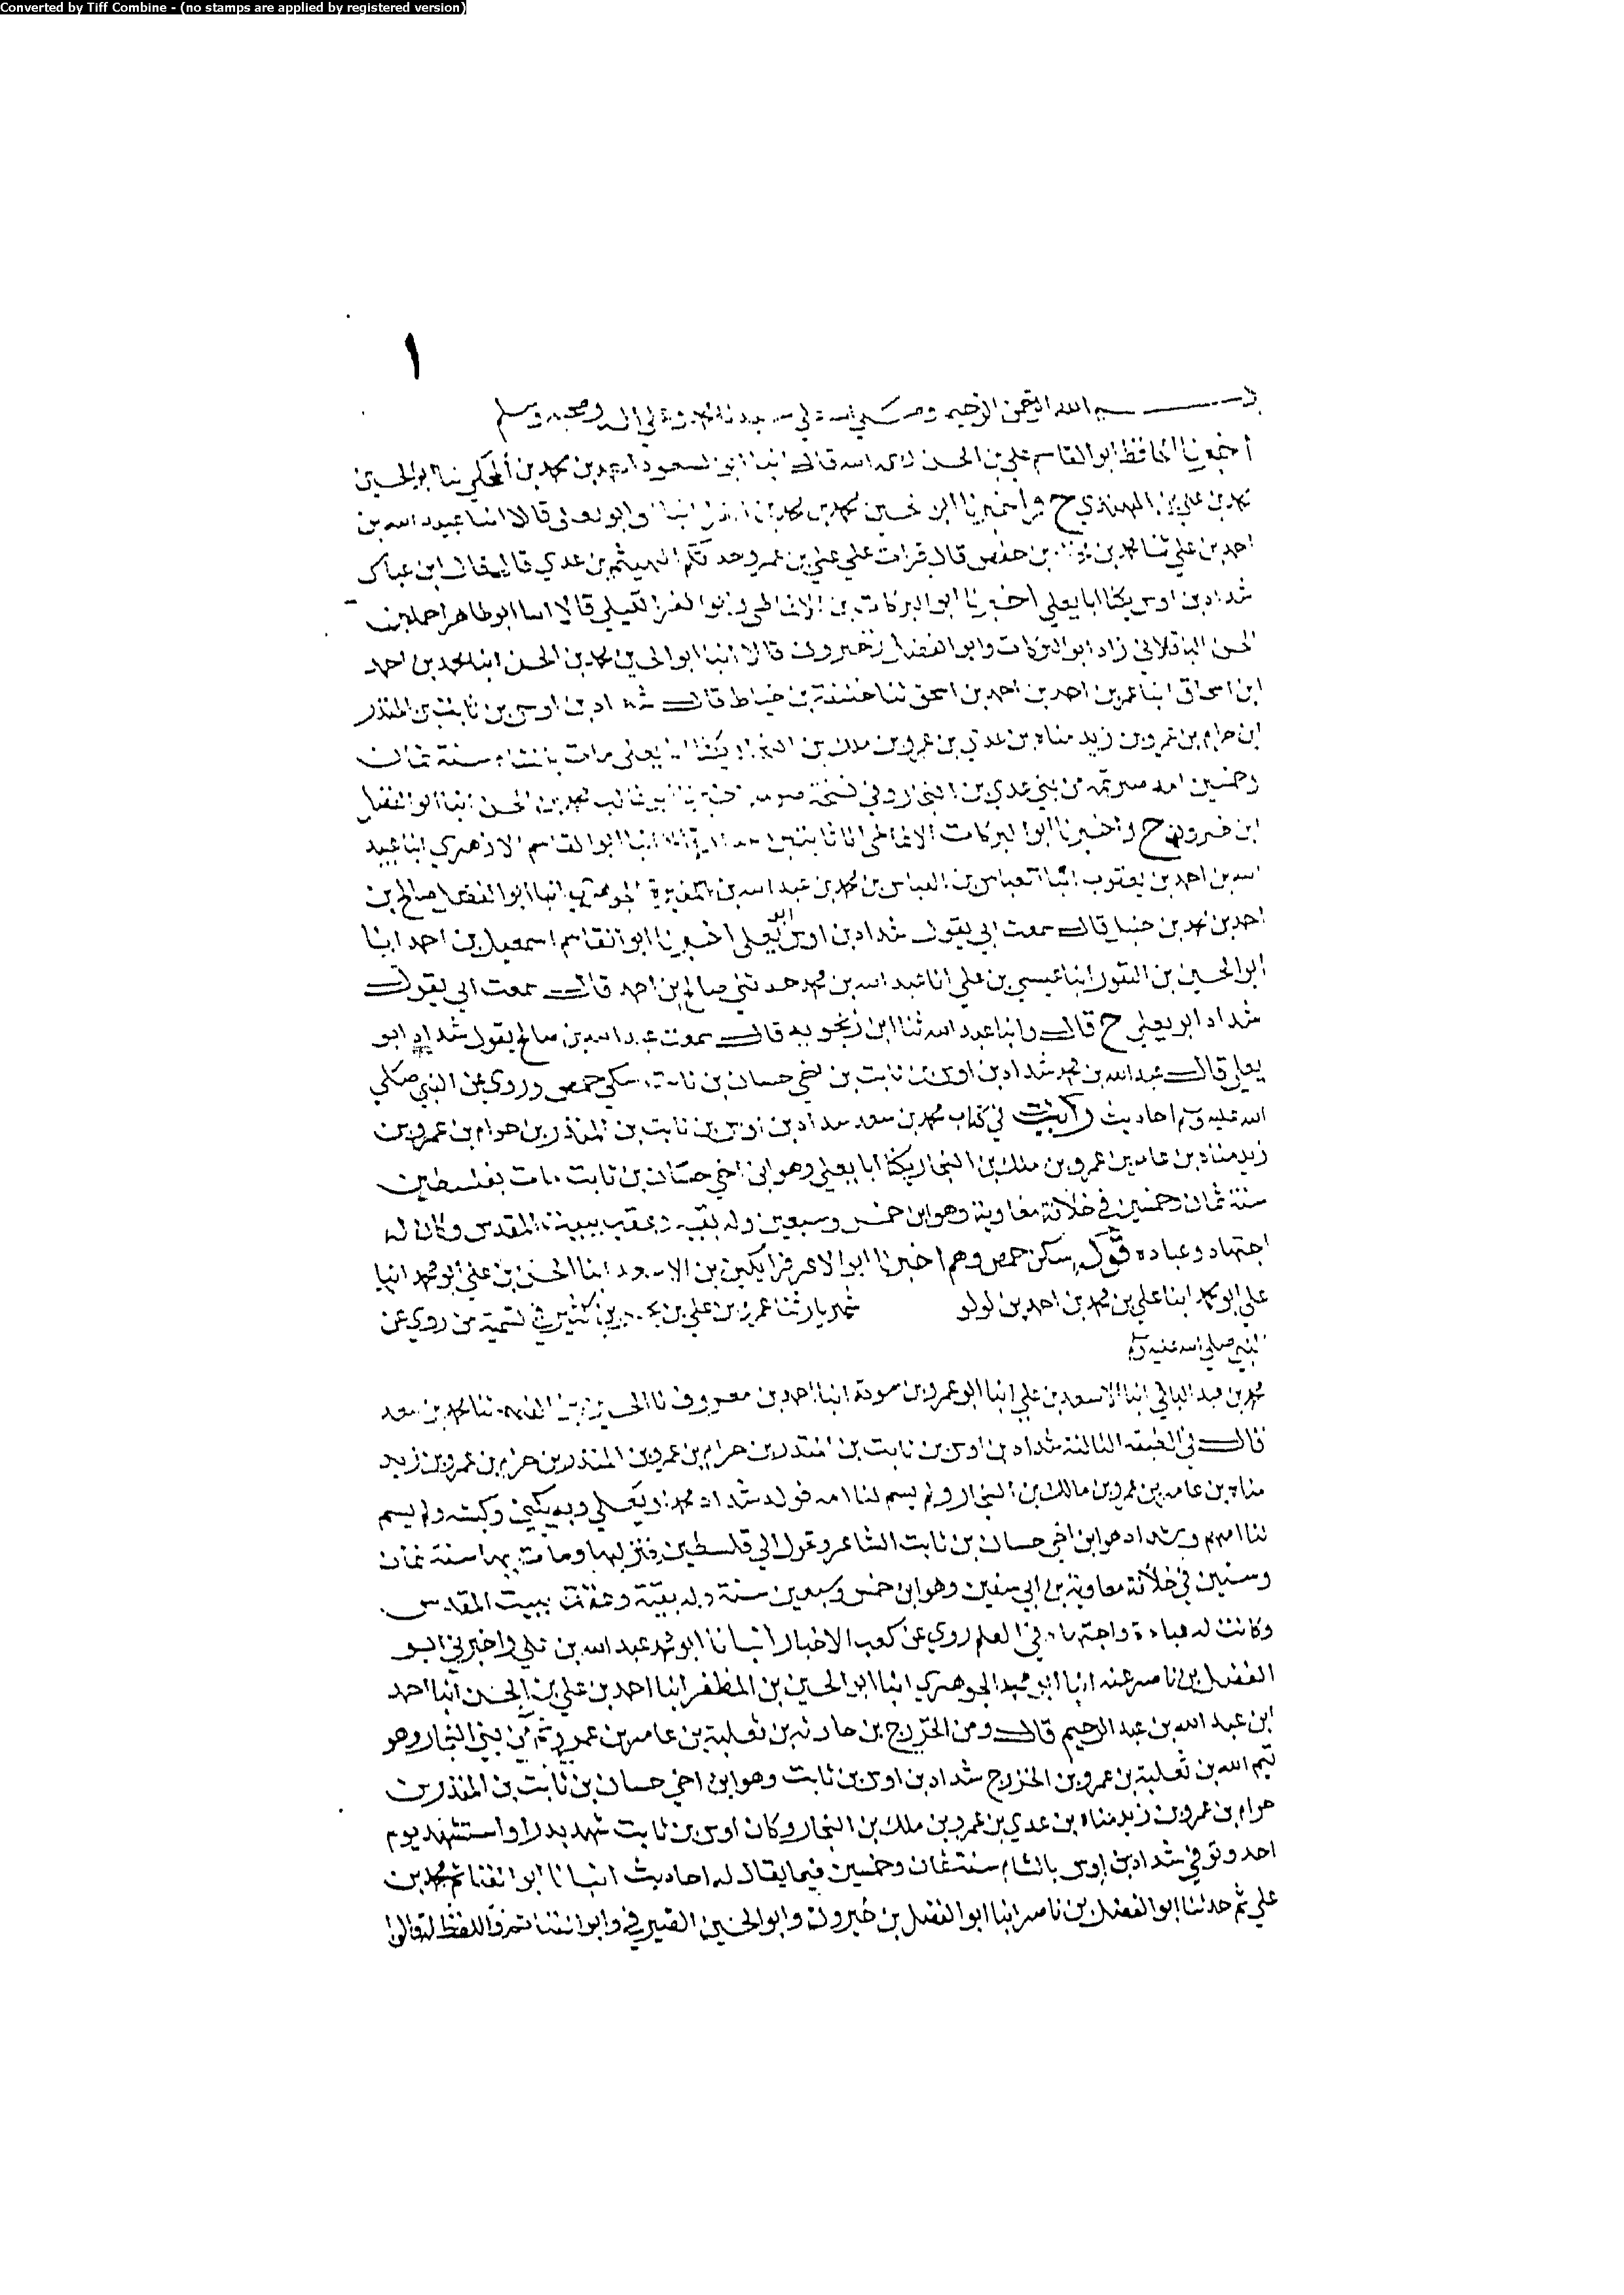 Converted by Tiff Combine - (no stamps are applied by registered version)
١
بسم الله الرحمن الرحيم وصلى الله على سيدنا محمد وعلى اله وصحبه وسلم
أخبرنا الحافظ ابو القاسم علي بن الحسن رحمه الله قال انبا ابو السعود احمد بن محمد بن المجلي ثنا ابو الحسين
محمد بن علي بن المهتدي ح واخبرنا ابو الحسين محمد بن محمد بن الفرا انبا ابو يعلى قالا انبا عبيد الله بن
احمد بن علي ثنا محمد بن مخلد بن حفص قال قرات على علي بن عمرو حدثكم الهيثم بن عدي قال قال ابن عياش
شداد بن اوس يكنا ابا يعلى اخبرنا ابو البركات بن الانماطي وابو العز الكيلي قالا انبا ابو طاهر احمد بن
الحسن الباقلاني زاد ابو البركات وابو الفضل بن خيرون قالا انبا ابو الحسين محمد بن الحسن انبا محمد بن احمد
ابن اسحاق انبا عمر بن احمد بن احمد بن اسحق ثنا خليفة بن خياط قال شداد بن اوس بن ثابت بن المنذر
ابن حرام بن عمرو بن زيد مناه بن عدي بن عمرو بن ملك بن النجار يكنا ابا يعلى مات بالشام سنة ثمان
وخمسين امه صريمه من بني عدي بن النجار وفي نسخة اخبرنا ابو غالب محمد بن الحسن انبا ابو الفضل
ابن خيرون ح واخبرنا ابو البركات الانماطي انا ثابت بن بندار قالا انبا ابو القاسم الازهري انبا عبيد
الله بن احمد بن يعقوب انبا العباس بن العباس بن محمد بن عبد الله بن المغيرة الجوهري انبا ابو الفضل صالح بن
احمد بن محمد بن حنبل قال سمعت ابي يقول شداد بن اوس ابو يعلى اخبرنا ابو القاسم اسمعيل بن احمد انبا
ابو الحسين بن النقور انبا عيسى بن علي انا عبد الله بن محمد حدثني صالح بن احمد قال سمعت ابي يقول
شداد ابو يعلى ح قال وانبا عبد الله ثنا ابن زنجويه قال سمعت عبد الله بن صالح يقول شداد ابو
يعلى قال عبد الله بن محمد شداد بن اوس بن ثابت بن اخي حسان بن ثابت سكن حمص وروى عن النبي صلى
الله عليه وسلم احاديث رأيت في كتاب محمد بن سعد شداد بن اوس بن ثابت بن المنذر بن حرام بن عمرو بن
زيد مناه بن عامر بن عمرو بن ملك بن النجار يكنا ابا يعلى وهو ابن اخي حسان بن ثابت مات بفلسطين
سنة ثمان وخمسين في خلافة معاوية وهو ابن خمس وسبعين وله بقيه وعقب ببيت المقدس وكان له
اجتهاد وعباده قوله سكن حمص وهم اخبرنا ابو الاعز قراتكين بن الاسعد انبا الحسن بن علي ابو محمد انبا
علي ابو محمد انبا علي بن محمد بن احمد بن لولو شهريار ثنا عمرو بن علي بن بحر بن كثير في تسمية من روى عن
النبي صلى الله عليه وسلم
محمد بن عبد الباقي انبا الاسعد بن علي انبا ابو عمرو بن حيوية انبا احمد بن معروف نا الحسين بن الفهم ثنا محمد بن سعد
قال في الطبقه الثالثة شداد بن اوس بن ثابت بن المنذر بن حرام بن عمرو بن المنذر بن حرام بن عمرو بن زيد
مناه بن عامر بن عمرو بن مالك بن النجار ولم يسم لنا امه فولد شداد محمدا ويعلى وبه يكنى وكبشه ولم يسم
لنا امهم وشداد هو ابن اخي حسان بن ثابت الشاعر وتحول الى فلسطين فنزلها ومات بها سنة ثمان
وستين في خلافة معاوية بن ابي سفين وهو ابن خمس وسبعين سنة وله بقيّة وعقب ببيت المقدس
وكانت له عبادة واجتهاد في العلم روي عن كعب الاحبار انبانا ابو محمد عبد الله بن علي واخبرني ابو
الفضل بن ناصر عنه انبا ابو محمد الجوهري انبا ابو الحسين بن المظفر انبا احمد بن علي بن الحسن انبا احمد
ابن عبد الله بن عبد الرحيم قال ومن الخزرج بن حارثه بن ثعلبة بن عامر بن عمرو ثم من بني النجار وهو
تيم الله بن ثعلبة بن عمرو بن الخزرج شداد بن اوس بن ثابت وهو ابن اخي حسان بن ثابت بن المنذر بن
حرام بن عمرو بن زيد مناه بن عدي بن عمرو بن ملك بن النجار وكان اوس بن ثابت شهد بدرا واستشهد يوم
احد وتوفي شداد بن اوس بالشام سنة ثمان وخمسين فيما يقال له احاديث انبانا ابو الغنائم محمد بن
علي ثم حدثنا ابو الفضل بن ناصر انبا ابو الفضل بن خيرون وابو الحسين الصيرفي وابو الغنائم واللفظ له قالوا